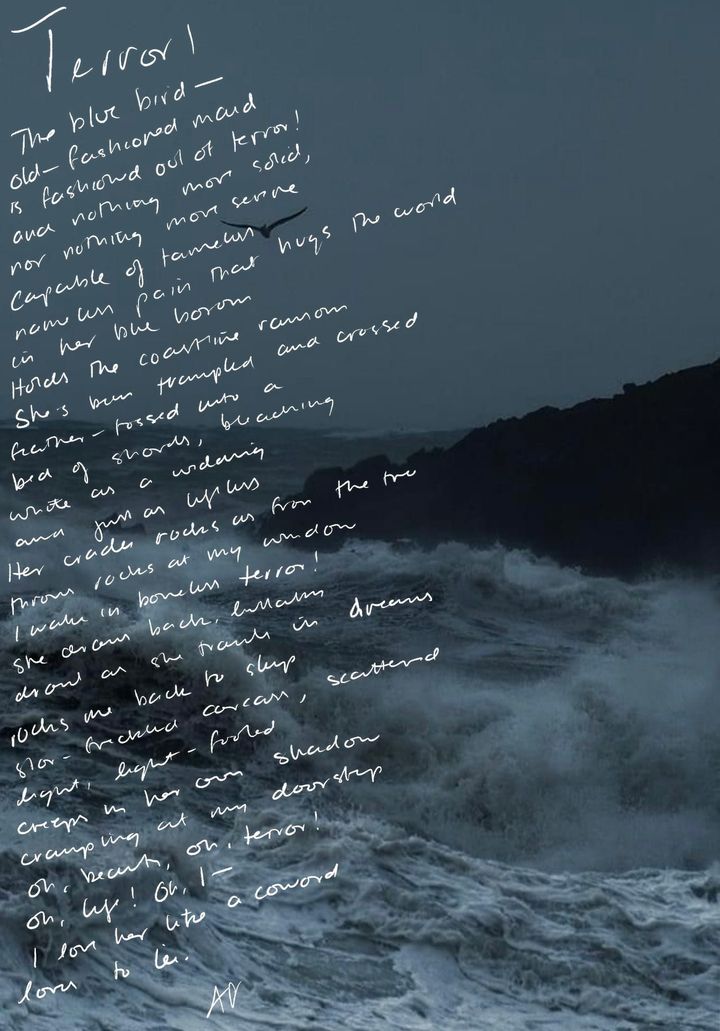 Terror!
The blue bird—
old-fashioned maid
is fashioned out of terror!
and nothing more solid,
nor nothing more serene
Capable of tameless
nameless pain that hugs the world
in her blue bosom
Holds the coastline ransom
She's been trampled and crossed
feather-tossed into a
bed of shards, bleaching
white as a wedding
and just as lifeless
Her cradle rocks as from the tree
throws rocks at my window
I wake in boneless terror!
she draws back, lullabies
drawl as she trawls in dreams
rocks me back to sleep
star-freckled carcass, scattered
light, light-footed
creeps in her own shadow
cramping at my doorstep
oh, beauty, oh, terror!
oh, life! Oh, I—
I love her like a coward
loves to lie.
AV